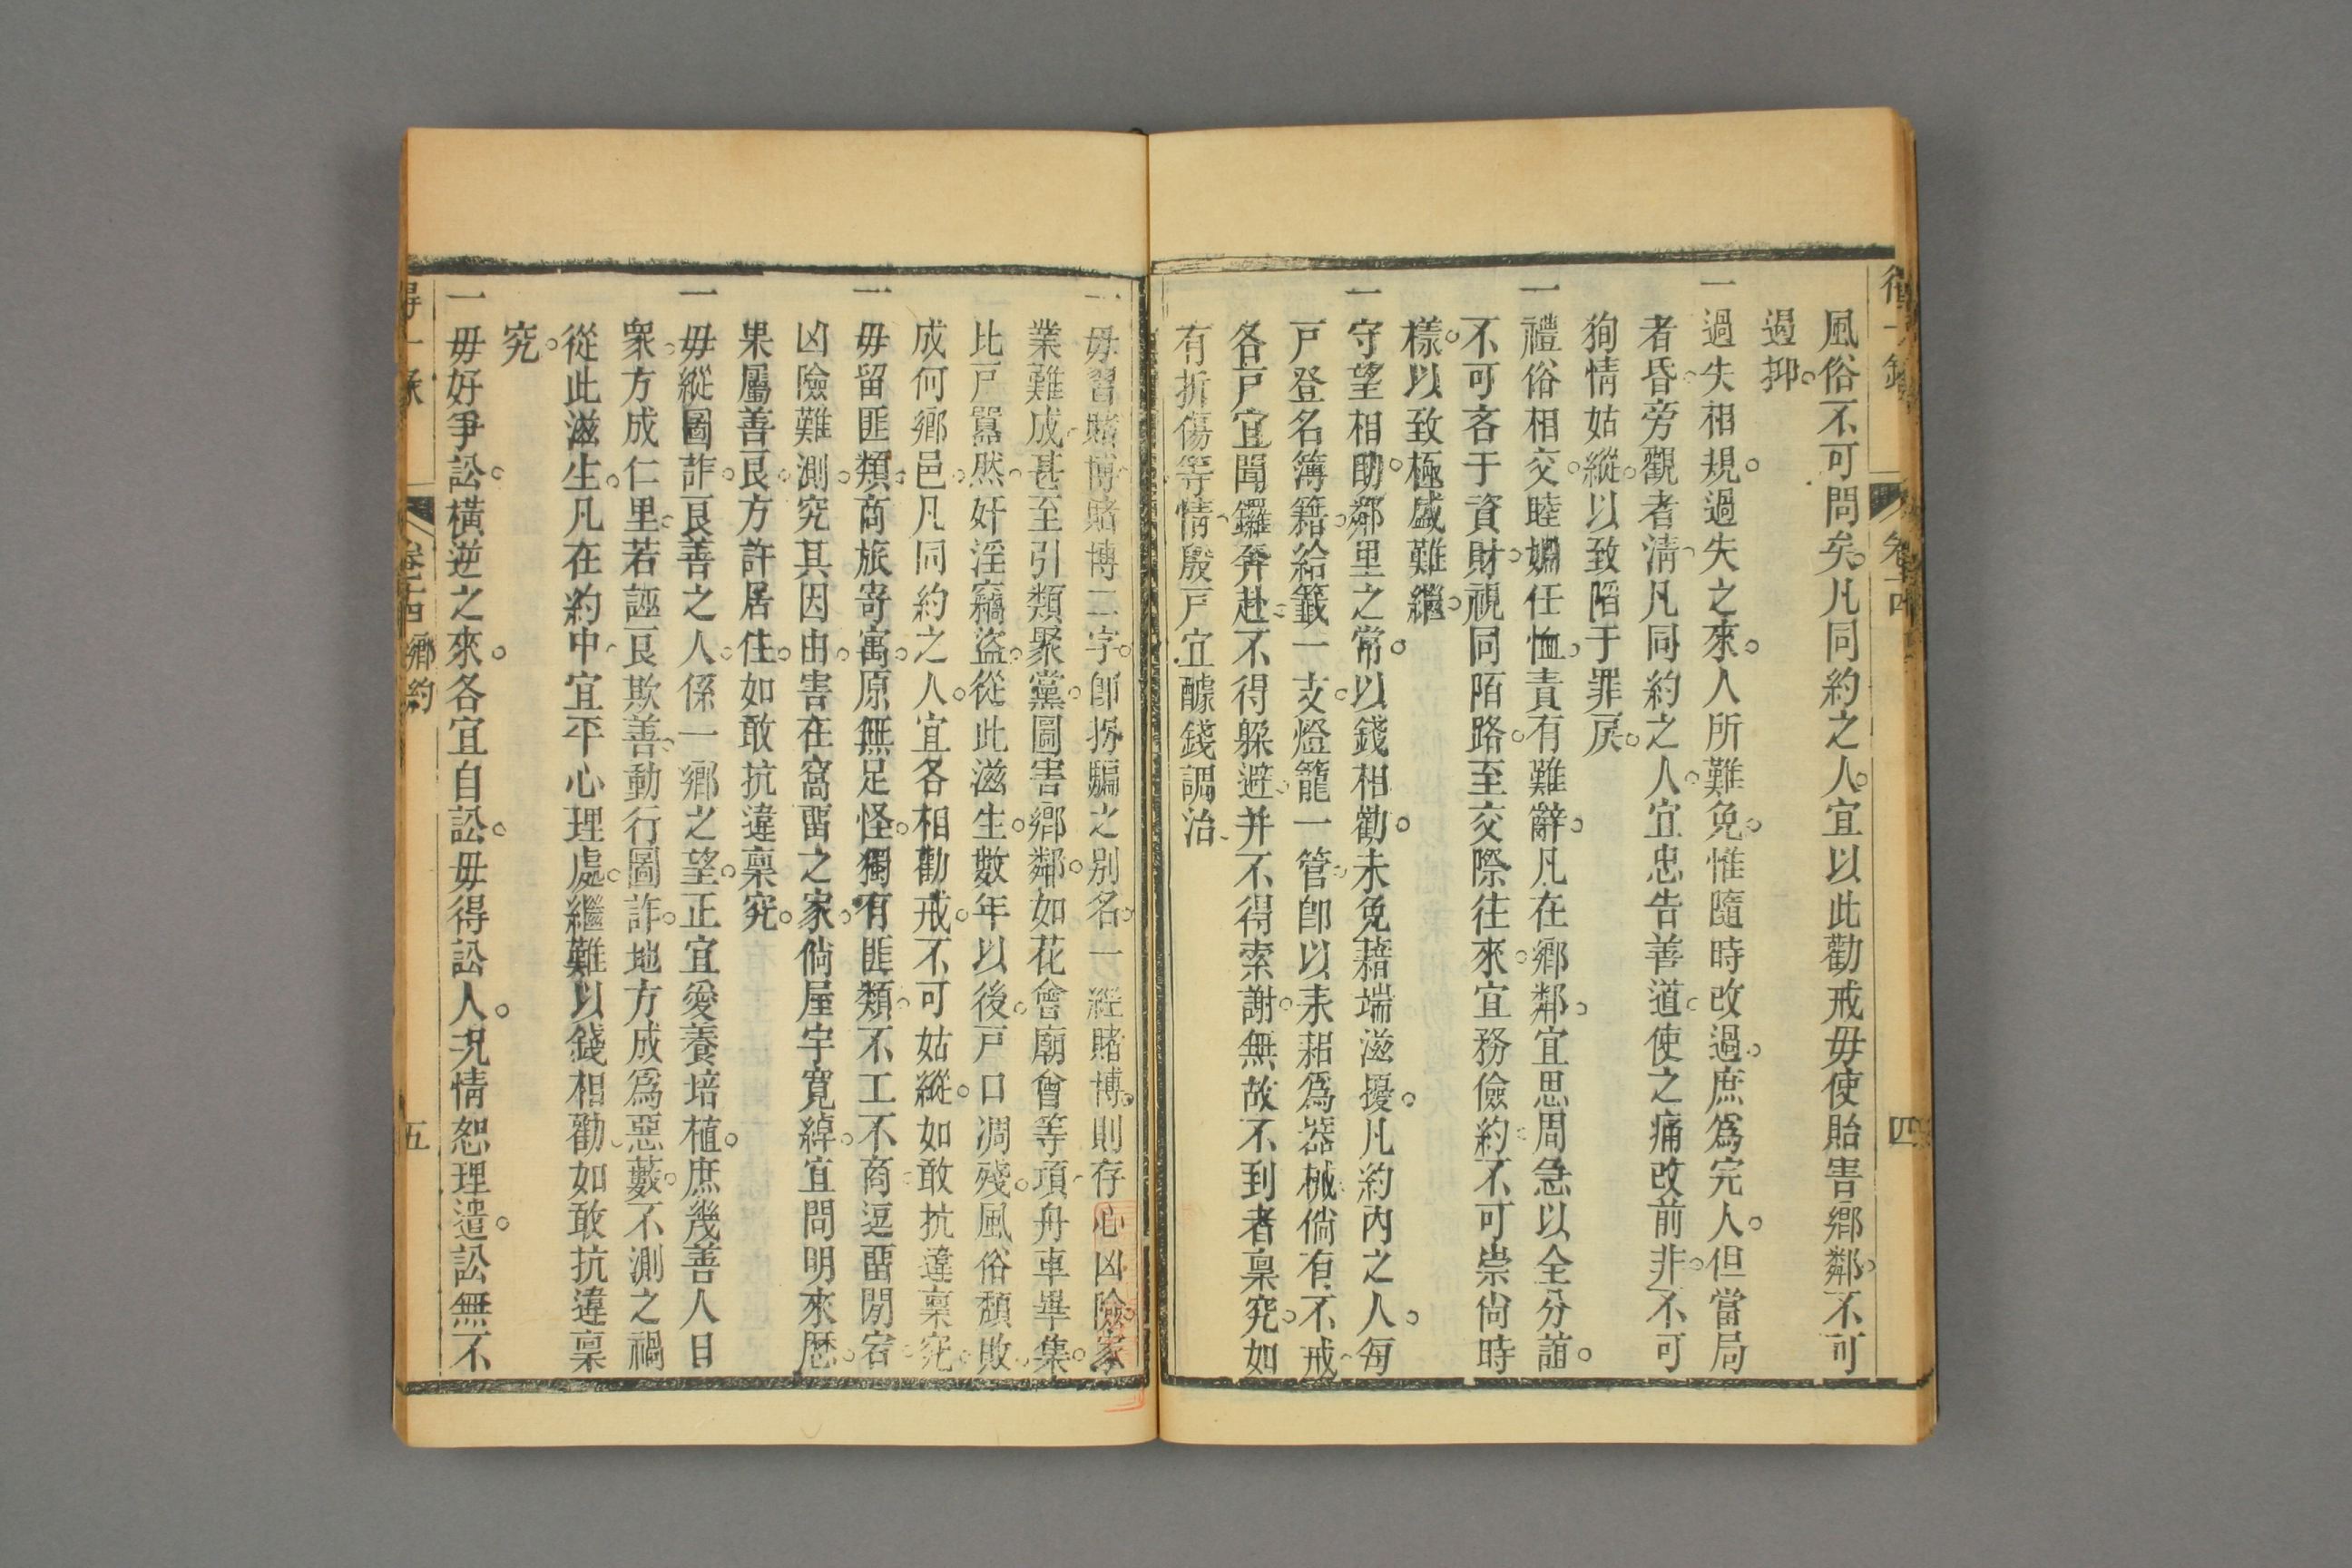 風俗不可問矣。凡同約之人。宜以此勸戒毋使貽害鄉鄰。不可
過抑。
一過失相規。過失之來。人所難免。惟隨時改過。庶爲完人。但當局
者昏。旁觀者淸。凡同約之人。宜忠告善道。使之痛改前非。不可
狥情姑縱。以致陷于罪戾。
一禮俗相交。睦婣任恤。責有難辭。凡在鄉鄰。宜思周急以全分誼。
不可吝于資財。視同陌路。至交際往來。宜務儉約。不可崇尙時
樣。以致極盛難繼。
一守望相助。鄰里之常。以錢相勸。未免藉端滋擾。凡約內之人。每
戸登名簿籍。給籖一支。燈籠一管。卽以耒耜爲器械。倘有不戒。
各戸宜聞鑼奔赴。不得躲避。并不得索謝。無故不到者稟究。如
有折傷等情。殷戸宜醵錢調治。
一毋習賭博。賭博二字。卽拐騙之别名。一經賭博。則存心凶險。家
業難成。甚至引類聚黨。圖害鄉鄰。如花會廟會等項。舟車畢集。
比戸囂然。奸淫竊盜。從此滋生。數年以後。戸口凋殘。風俗頽敗。
成何鄉邑。凡同約之人。宜各相勸戒。不可姑縱。如敢抗違稟究。
一毋留匪類。商旅寄寓。原無足怪。獨有匪類。不工不商。逗畱閒宕。
凶險難測。究其因由。害在窩畱之家。倘屋宇寬綽。宜問明來歷。
果屬善良。方許居住。如敢抗違稟究。
一毋縱圖詐。良善之人。係一鄉之望。正宜愛養培植。庶幾善人日
衆。方成仁里。若誣良欺善。動行圖詐。地方成爲惡藪。不測之禍
從此滋生。凡在約中。宜平心理處。繼難以錢相勸。如敢抗違稟
究。
一毋好爭訟。橫逆之來。各宜自訟。毋得訟人。况情恕理遣。訟無不
得一錄
卷十四
四
得一錄
卷十四鄉約
五